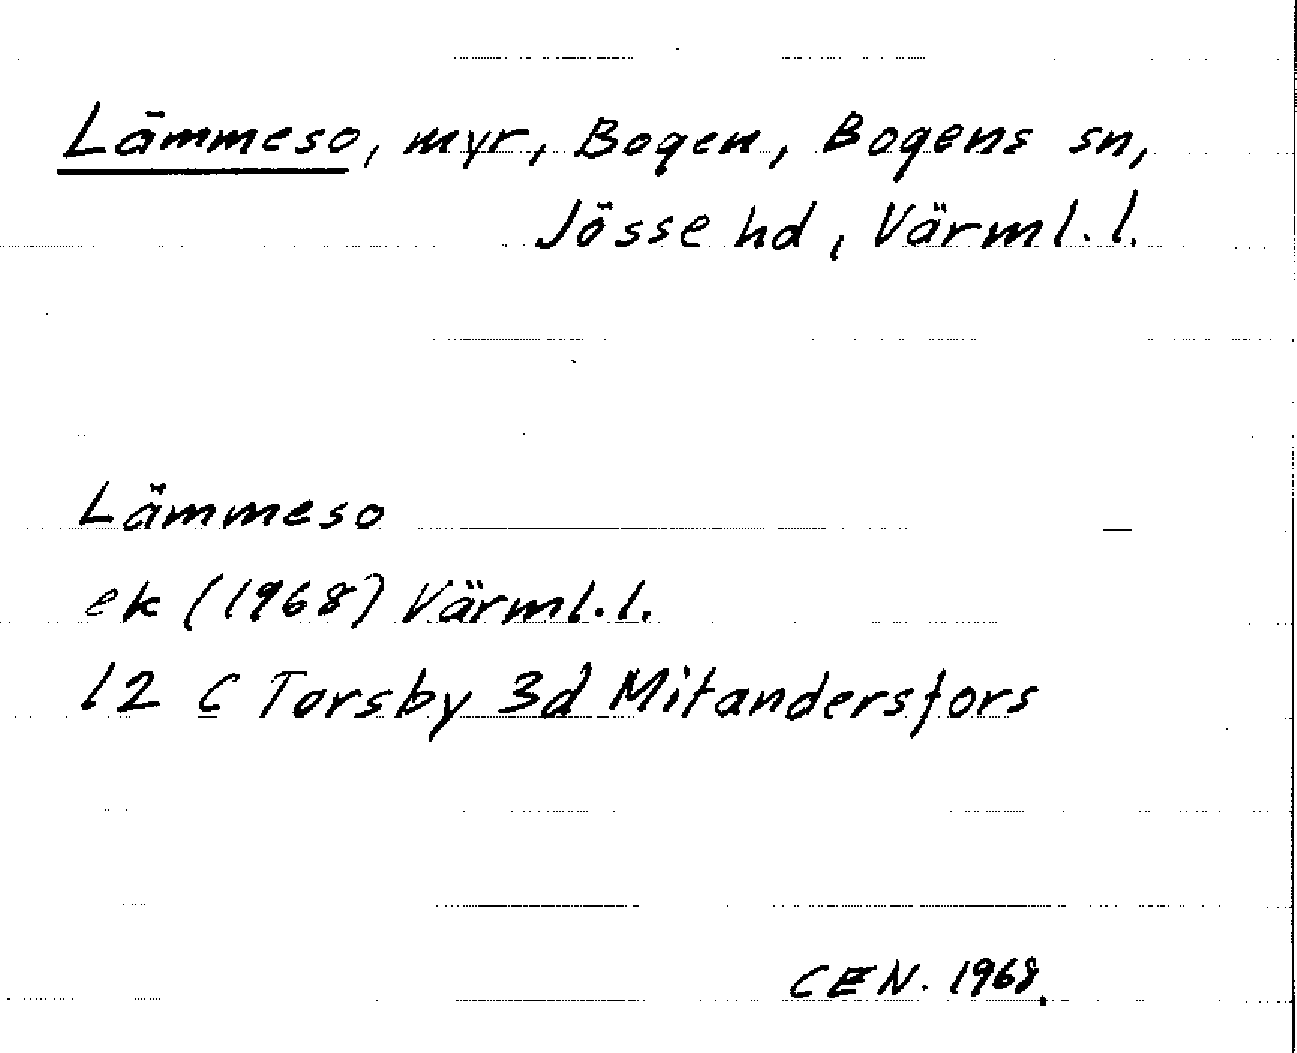 Lämmeso, myr, Bogen, Bogens sn,
Jösse hd, Värml. l.
Lämmeso
ek (1968) Värml. l.
12 C Torsby 3d Mitandersfors
CEN. 1968.